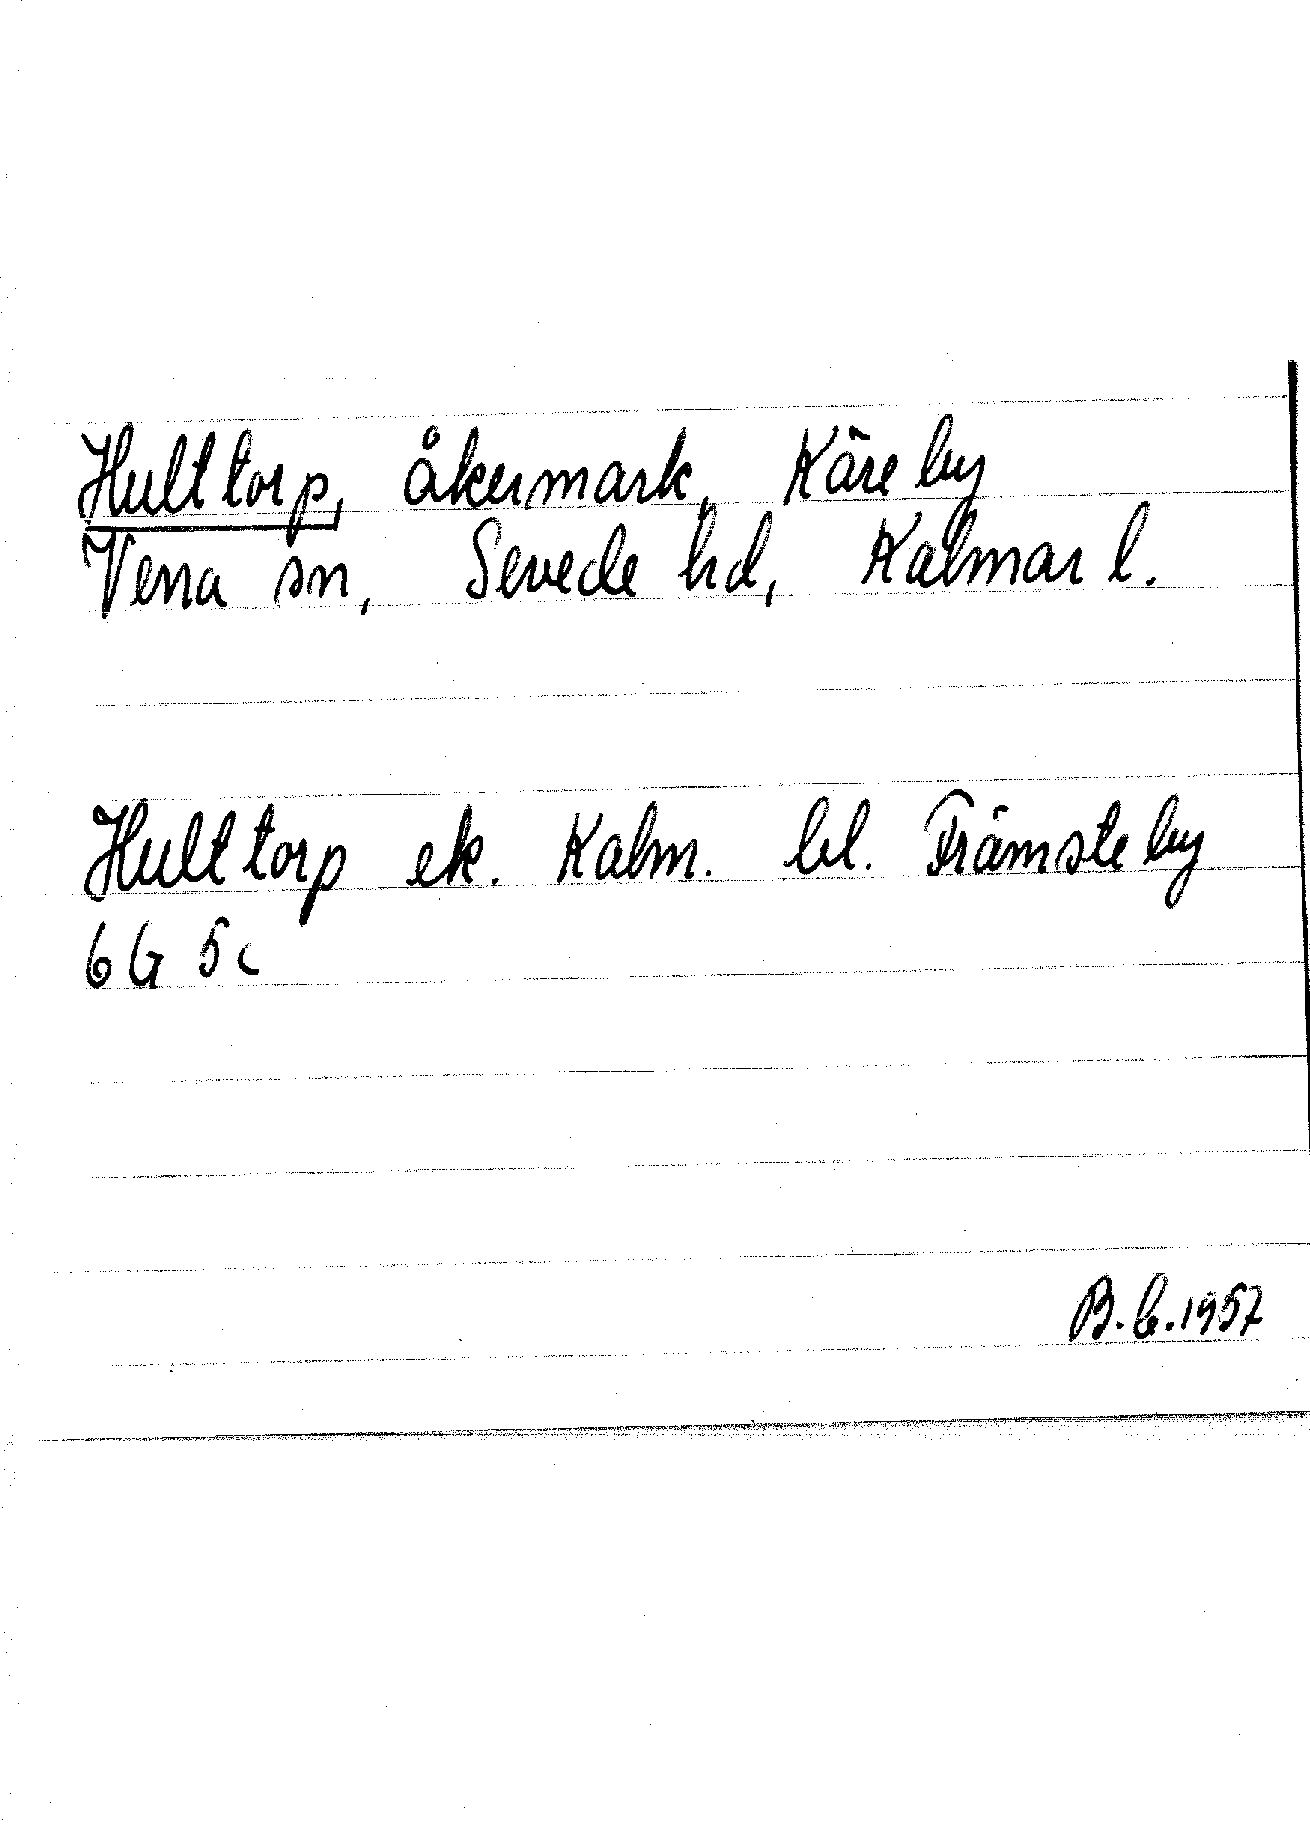 Hulttorp, åkermark, Käreby
Vena sn, Sevede hd, Kalmar l.
Hulttorp ek. Kalm. bl. Främsteby
6G 5c
B.C.1957